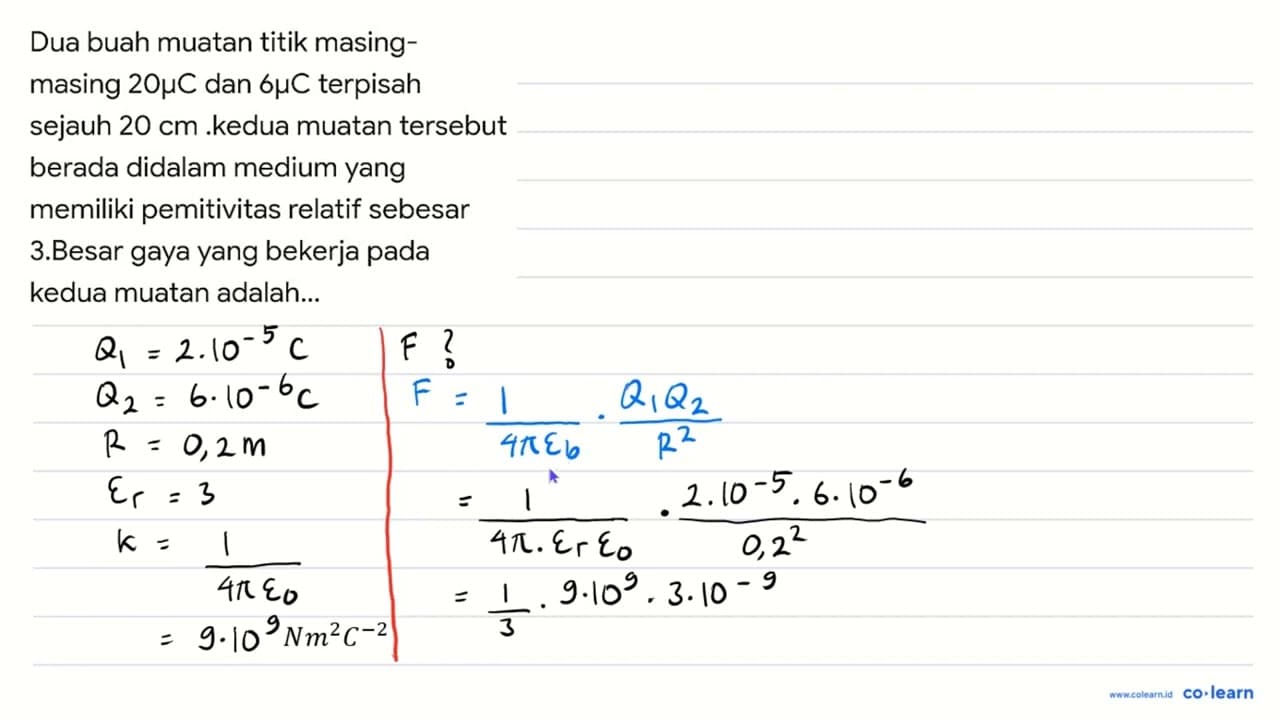 Dua buah muatan titik masing-
masing 20μC dan 6μC terpisah
sejauh 20 cm .kedua muatan tersebut
berada didalam medium yang
memiliki pemitivitas relatif sebesar
3.Besar gaya yang bekerja pada
kedua muatan adalah...
Q₁ = 2.10⁻⁵ C
Q₂ = 6.10⁻⁶ C
R = 0,2 m
εr = 3
k = 1 / 4π ε₀
= 9.10⁹ Nm²C⁻²
F ?
F = 1 / 4π εb . Q₁Q₂ / R²
= 1 / 4π. εr ε₀ . 2.10⁻⁵. 6.10⁻⁶ / 0,2²
= 1 / 3 . 9.10⁹ . 3.10⁻⁹
www.colearn.id co·learn